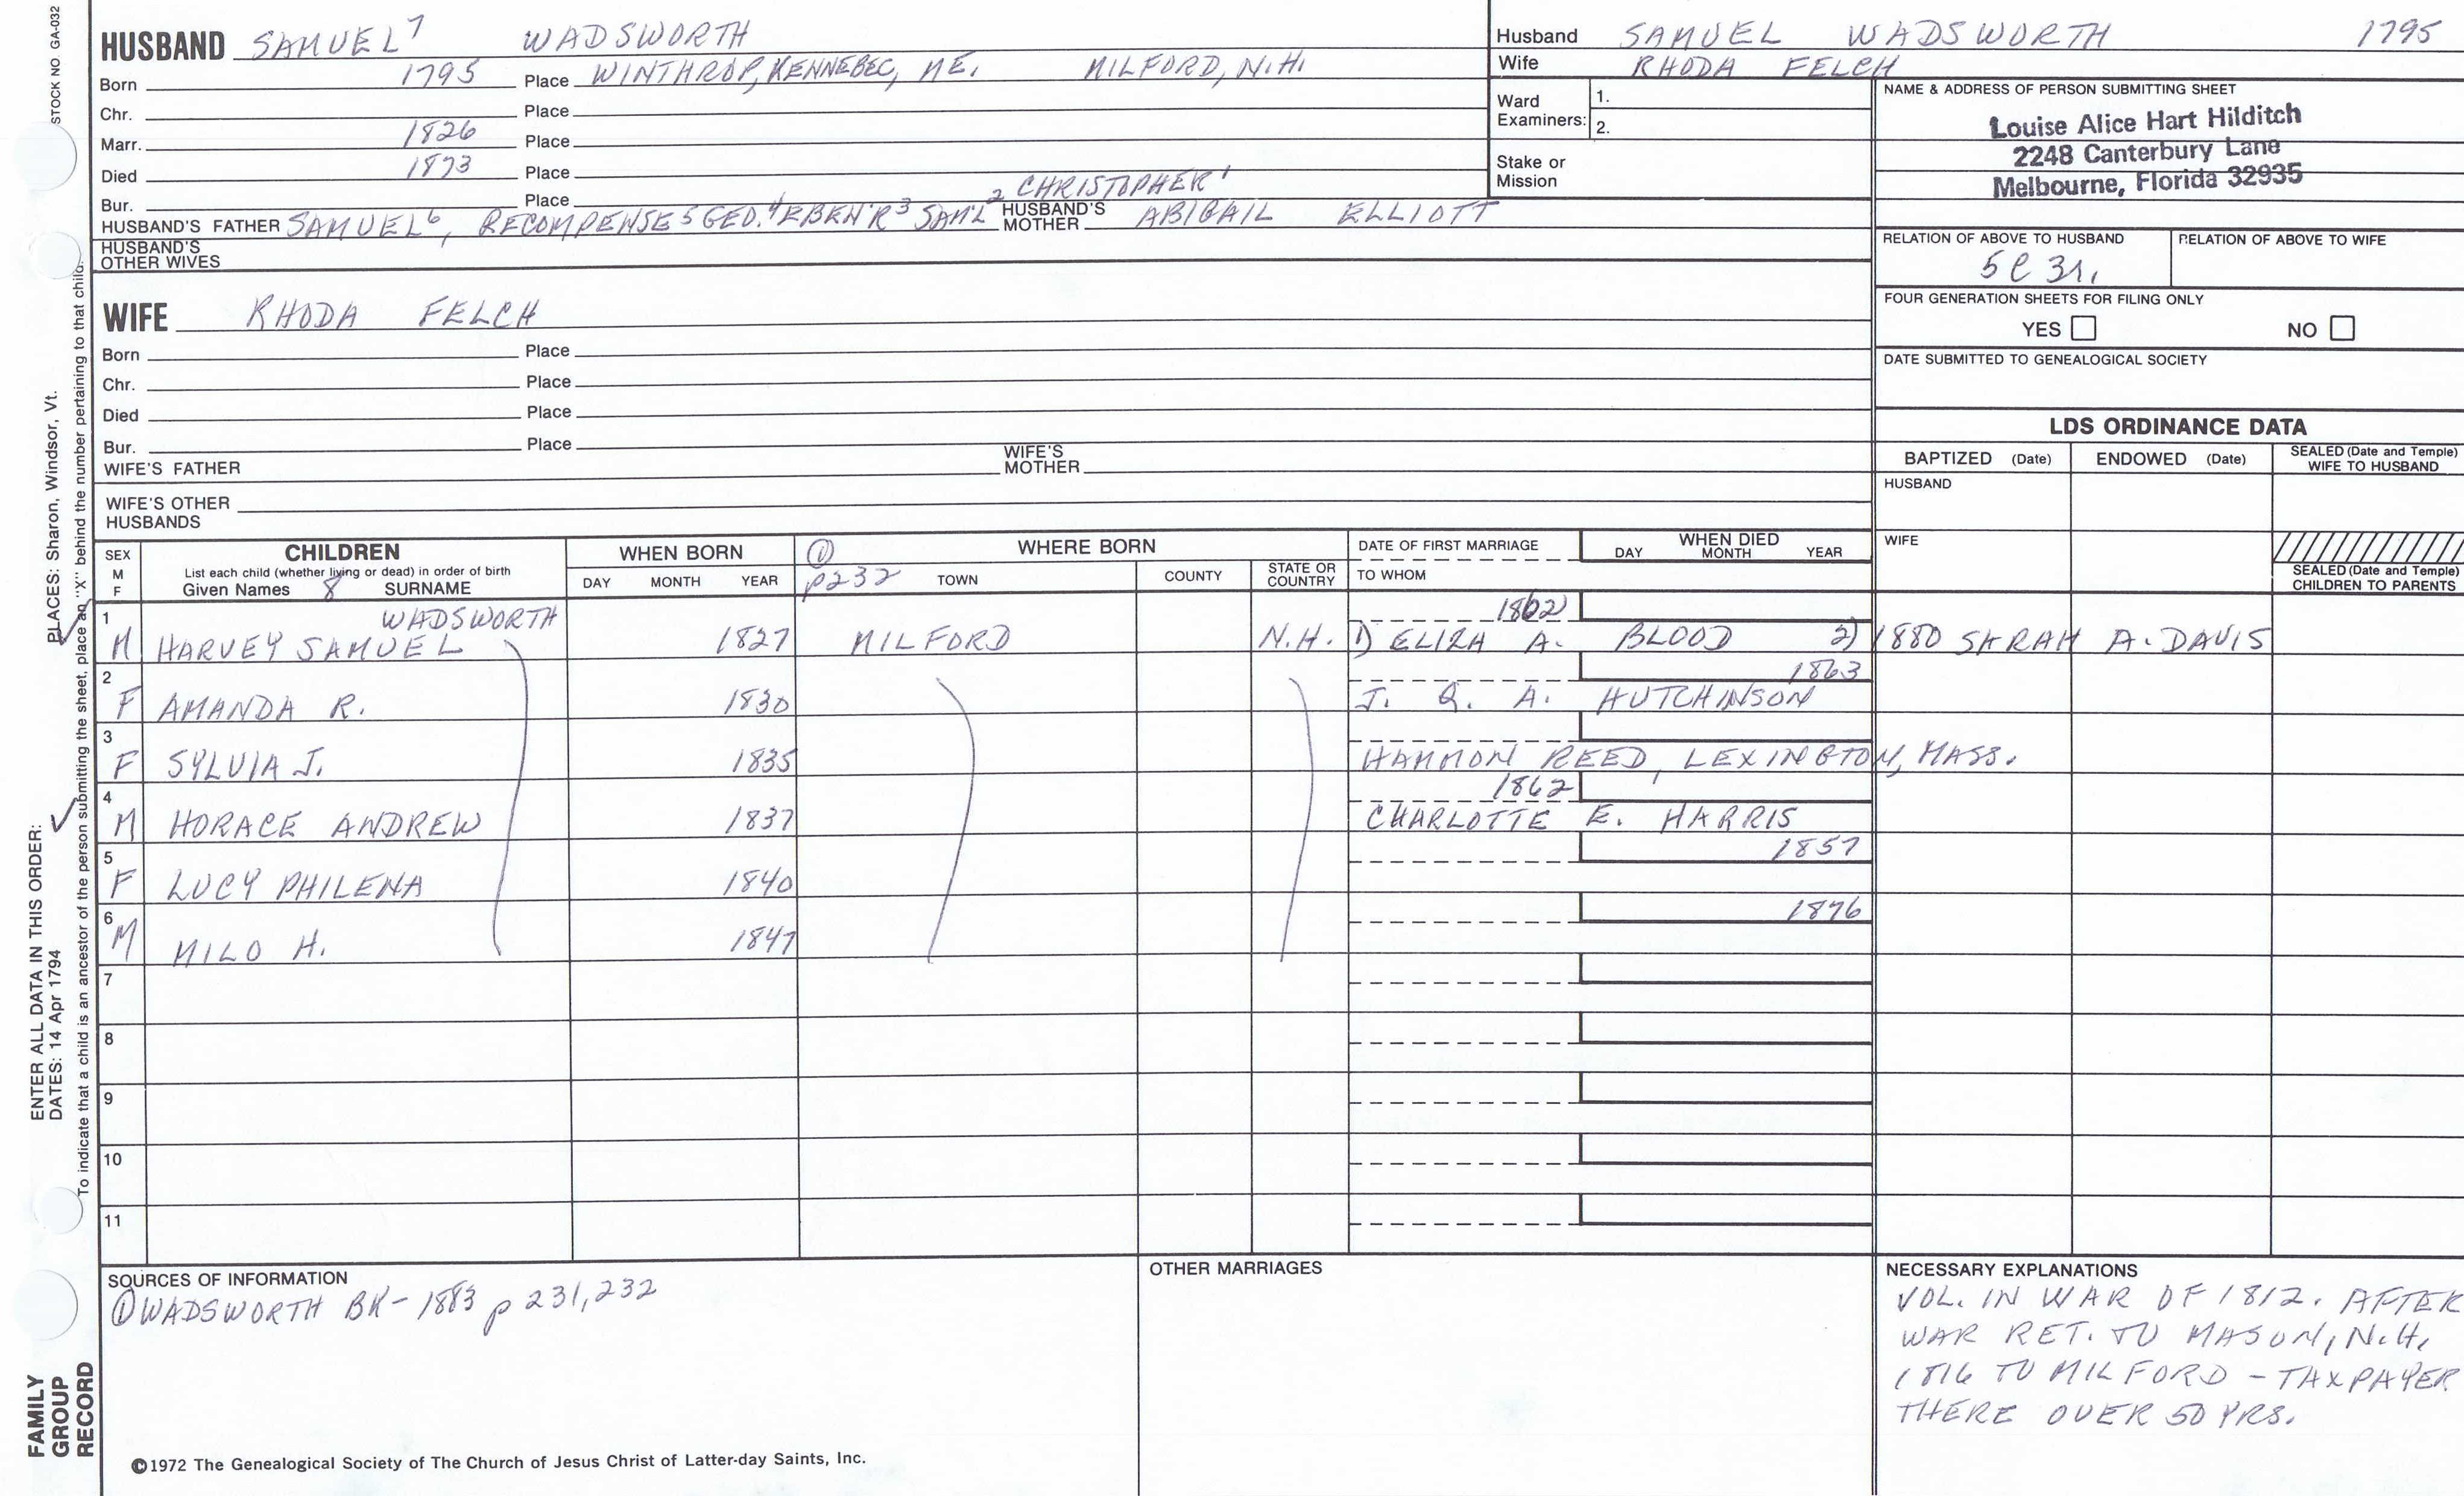 STOCK NO. GA-032
HUSBAND SAMUEL⁷ WADSWORTH
Born 1795 Place WINTHROP, KENNEBEC, ME. MILFORD, N.H.
Chr. Place
Marr. 1826 Place
Died 1873 Place
Bur. Place
HUSBAND'S FATHER SAMUEL⁶, RECOMPENSE⁵ GED.⁴ EBEN'R³ SAM'L² CHRISTOPHER¹ HUSBAND'S MOTHER ABIGAIL ELLIOTT
HUSBAND'S OTHER WIVES
Husband SAMUEL WADSWORTH 1795
Wife RHODA FELCH
Ward Examiners: 1.
2.
Stake or Mission
NAME & ADDRESS OF PERSON SUBMITTING SHEET
Louise Alice Hart Hilditch
2248 Canterbury Lane
Melbourne, Florida 32935
RELATION OF ABOVE TO HUSBAND RELATION OF ABOVE TO WIFE
5C 3r.
FOUR GENERATION SHEETS FOR FILING ONLY
YES NO
DATE SUBMITTED TO GENEALOGICAL SOCIETY
WIFE RHODA FELCH
Born Place
Chr. Place
Died Place
Bur. Place
WIFE'S FATHER WIFE'S MOTHER
WIFE'S OTHER HUSBANDS
LDS ORDINANCE DATA
BAPTIZED (Date) ENDOWED (Date) SEALED (Date and Temple) WIFE TO HUSBAND
HUSBAND
WIFE
SEALED (Date and Temple) CHILDREN TO PARENTS
SEX M F
CHILDREN
List each child (whether living or dead) in order of birth
Given Names 8 SURNAME
WHEN BORN
DAY MONTH YEAR
① p232 WHERE BORN
TOWN COUNTY STATE OR COUNTRY
DATE OF FIRST MARRIAGE
TO WHOM
WHEN DIED
DAY MONTH YEAR
1 WADSWORTH 1862
M HARVEY SAMUEL 1827 MILFORD N.H. 1) ELIZA A. BLOOD 2) 1880 SARAH A. DAVIS
2 1863
F AMANDA R. 1830 J. Q. A. HUTCHINSON
3
F SYLVIA J. 1835 HAMMON REED, LEXINGTON, MASS.
4 1862
M HORACE ANDREW 1837 CHARLOTTE E. HARRIS
5 1857
F LUCY PHILENA 1840
6 1876
M MILO H. 1847
7
8
9
10
11
SOURCES OF INFORMATION
①WADSWORTH BK - 1883 p 231,232
OTHER MARRIAGES
NECESSARY EXPLANATIONS
VOL. IN WAR OF 1812. AFTER
WAR RET. TO MASON, N.H.
1816 TO MILFORD - TAXPAYER
THERE OVER 50 YRS.
©1972 The Genealogical Society of The Church of Jesus Christ of Latter-day Saints, Inc.
FAMILY GROUP RECORD
ENTER ALL DATA IN THIS ORDER:
DATES: 14 Apr 1794
PLACES: Sharon, Windsor, Vt.
To indicate that a child is an ancestor of the person submitting the sheet, place an "X" behind the number pertaining to that child.